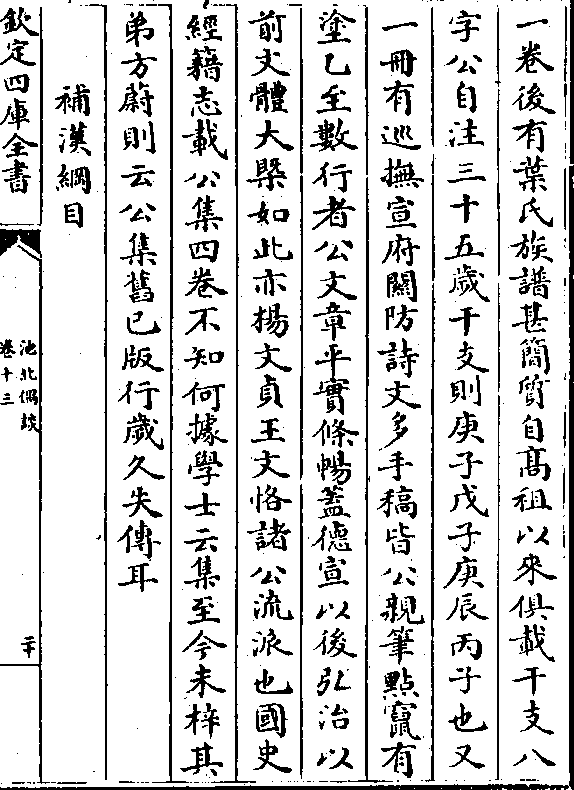 一卷後有葉氏族譜甚簡質自髙祖以來俱載干支八
字公自注三十五歲干支則庚子戊子庚辰丙子也又
一冊有巡撫宣府關防詩文多手稿皆公親筆點竄有
塗乙至數行者公文章平實條暢蓋德宣以後弘治以
前文體大槩如此亦楊文貞王文恪諸公流派也國史
經籍志載公集四卷不知何據學士云集至今未梓其
弟方蔚則云公集舊已版行歲久失傳耳
補漢綱目
欽定四庫全書
池北偶談
卷十三
二十